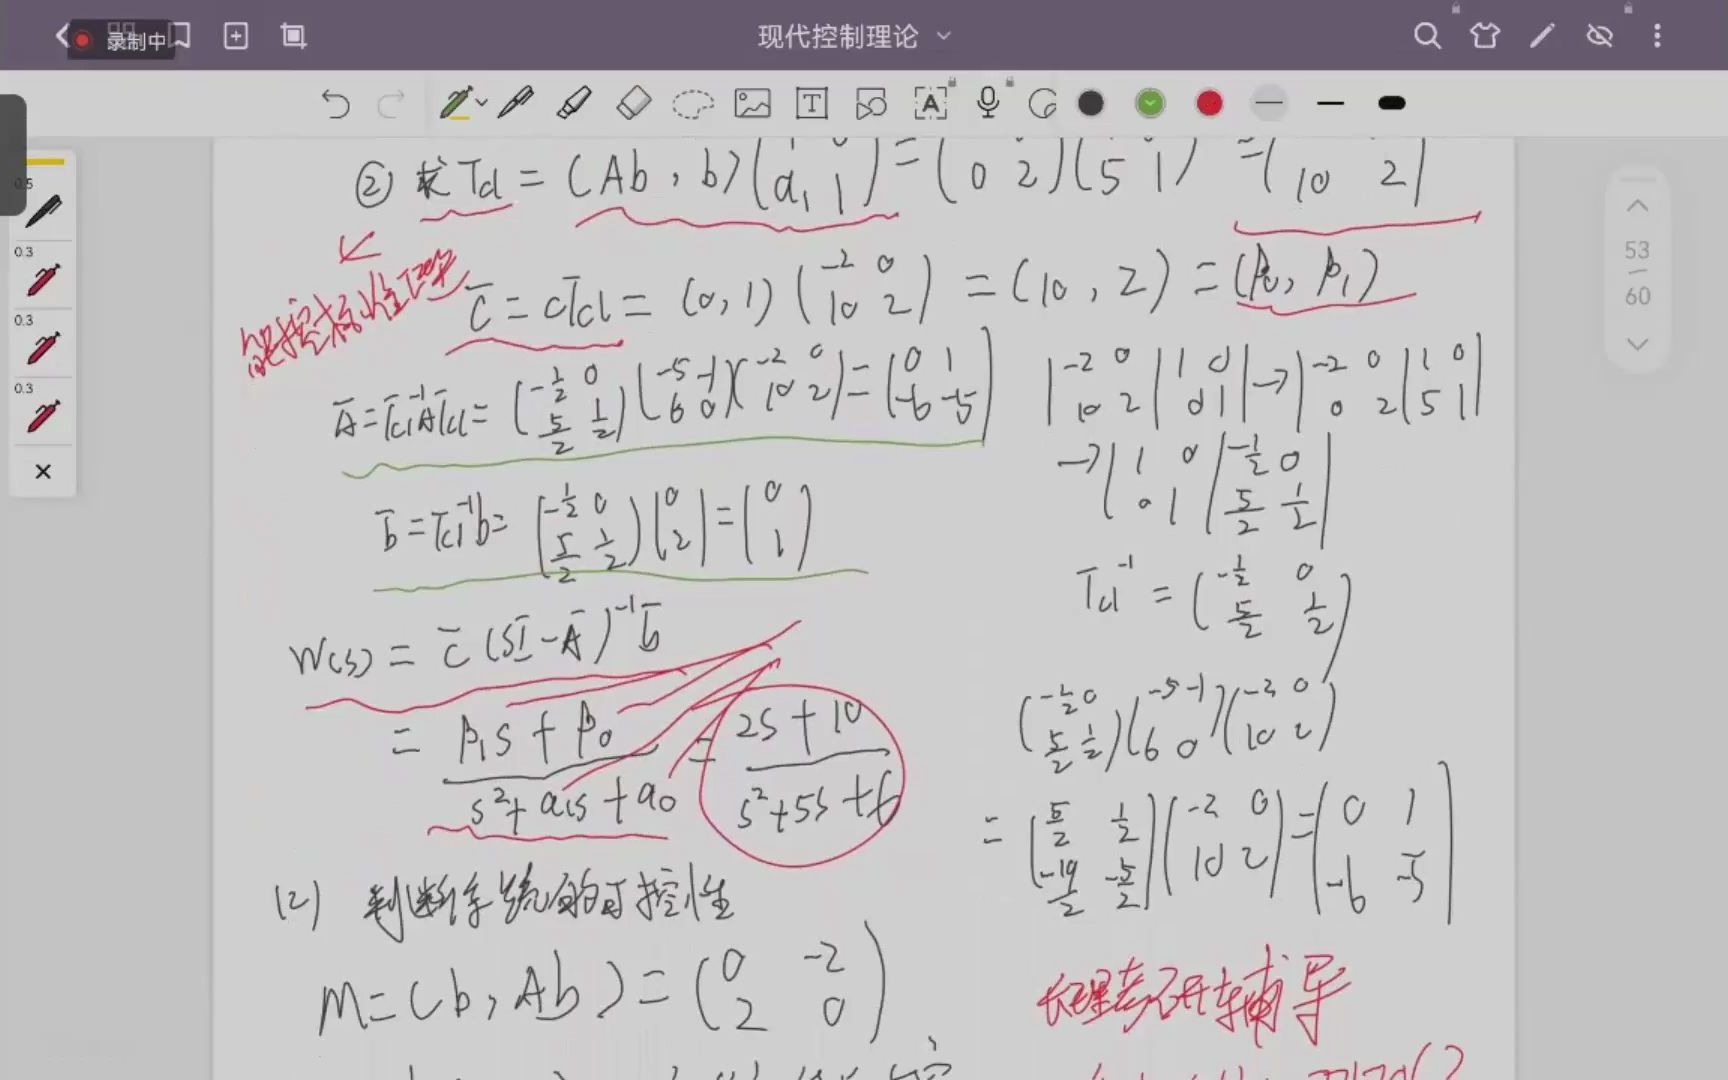 录制中
现代控制理论
0.5
0.3
0.3
0.3
53
60
② 求Tc1 = (Ab, b)( a1 1) = (0 2)(5 1) = (10 2)
能控标准Ⅰ型
c̄ = cTc1 = (0, 1) (-2 0 10 2) = (10, 2) = (β0, β1)
Ā = Tc1⁻¹ATc1 = (-1/2 0 5/2 1/2)(-5 -1 6 0)(-2 0 10 2) = (0 1 -6 -5)
|-2 0 10 2 | 1 0 0 1| → |-2 0 0 2 | 1 0 5 1|
→ |1 0 0 1 | -1/2 0 5/2 1/2|
b̄ = Tc1⁻¹b = (-1/2 0 5/2 1/2)(0 2) = (0 1)
Tc1⁻¹ = (-1/2 0 5/2 1/2)
W(s) = c̄ (sI - Ā)⁻¹ b̄
(-1/2 0 5/2 1/2)(-5 -1 6 0)(-2 0 10 2)
= (β1s + β0)/(s² + a1s + a0) = (2s + 10)/(s² + 5s + 6)
= (5/2 1/2 -19/2 -5/2)(-2 0 10 2) = (0 1 -6 -5)
(2) 判断系统的可控性
M = (b, Ab) = (0 -2 2 0)
长理考研辅导